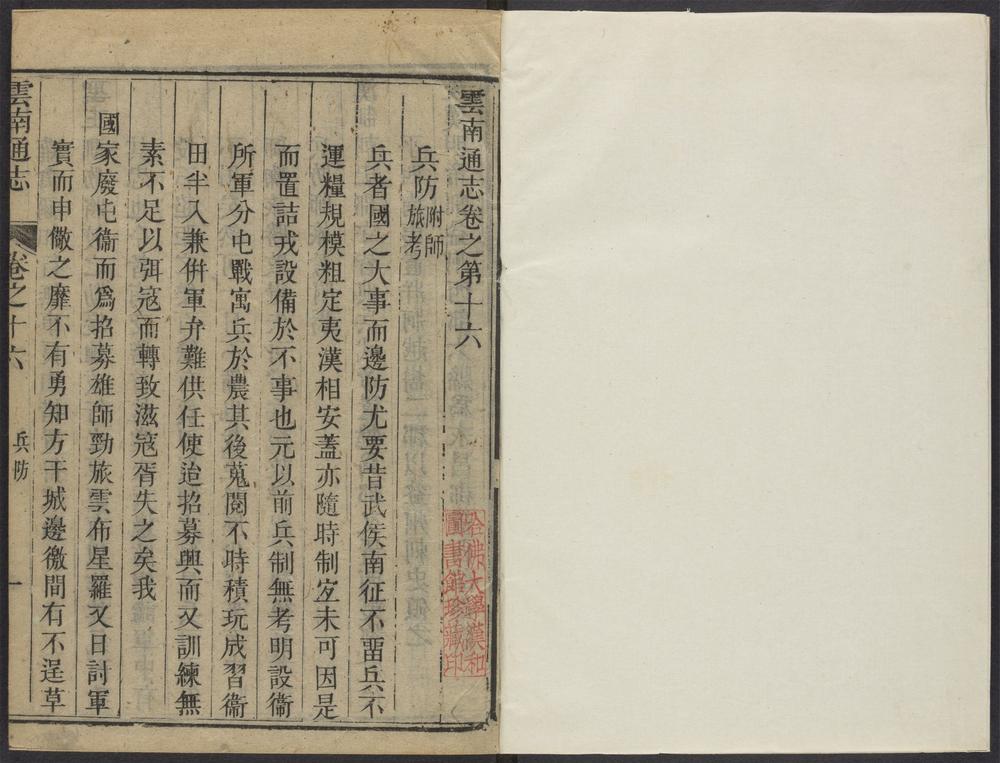 雲南通志卷之第十六
兵防附師旅考
兵者國之大事而邊防尤要昔武侯南征不畱兵不
運糧規模粗定夷漢相安蓋亦隨時制宐未可因是
而置詰戎設備於不事也元以前兵制無考明設衞
所軍分屯戰寓兵於農其後蒐閱不時積玩成習衞
田半入兼併軍弁難供任使迨招募興而又訓練無
素不足以弭寇而轉致滋寇胥失之矣我
國家廢屯衞而爲招募雄師勁旅雲布星羅又日討軍
實而申儆之靡不有勇知方干城邊徼間有不逞草
雲南通志
卷之十六
兵防
一
哈佛大學漢和
圖書館珍藏印